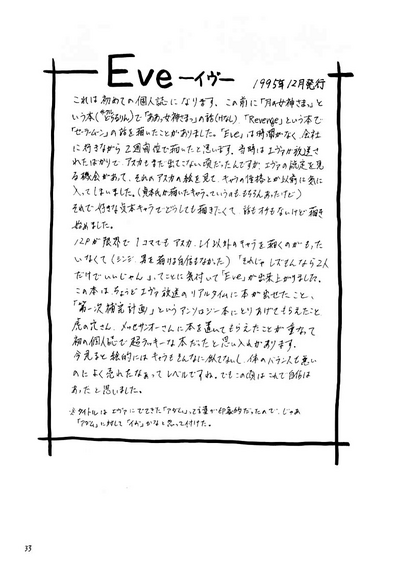 Eve ーイヴー
1995年12月発行
これは初めての個人誌になります、この前に「月の女神さま」と
いう本(で「ああっ女神さまっ」の話(けなし)、「Revenge」という本で
「セーラームーン」の話を描いたことがありました。「Eve」は時間がなく、会社
に行きながら2週間程で描いたと思います。当時はエヴァが放送さ
れたばかりで、アスカもまだ出てこない頃だったんですが、エヴァの設定を見
る機会があって、それのアスカの絵を見て、キャラの性格とか以前に気に
入ってしまいました。(貞本氏が描いたキャラ、っていうのももちろんあったけど)
それで好きな貞本キャラでどうしても描きたくて、話もオチもないけど描き
始めました。
12Pが限界で1コマでもアスカ、レイ以外のキャラを描くのがもった
いなくて(シンジ、其を描く自信もなかった)「それじゃレズもんなら2人
だけでいいじゃん」ってことに気付いて「Eve」が出来上がりました。
この本はちょうどエヴァ放送のリアルタイムに本が出せたこと、
「第一次補完計画」というアンソロジー本にとりあげてもらえたこと
虎の穴さん、メッセサンオーさんに本を置いてもらえたことが重なって
初の個人誌で超ラッキーな本だったと思い入れがあります。
今見ると絵的にはキャラもそんなに似てないし、体のバランスも悪い
のによく売れたなぁってレベルですね。でもこの頃はこれで自信は
あったと思いました。
※タイトルはエヴァにでてきた「アダム」って言葉が印象的だったので、じゃあ
「アダム」に対して「イヴ」かなと思って付けた。
33